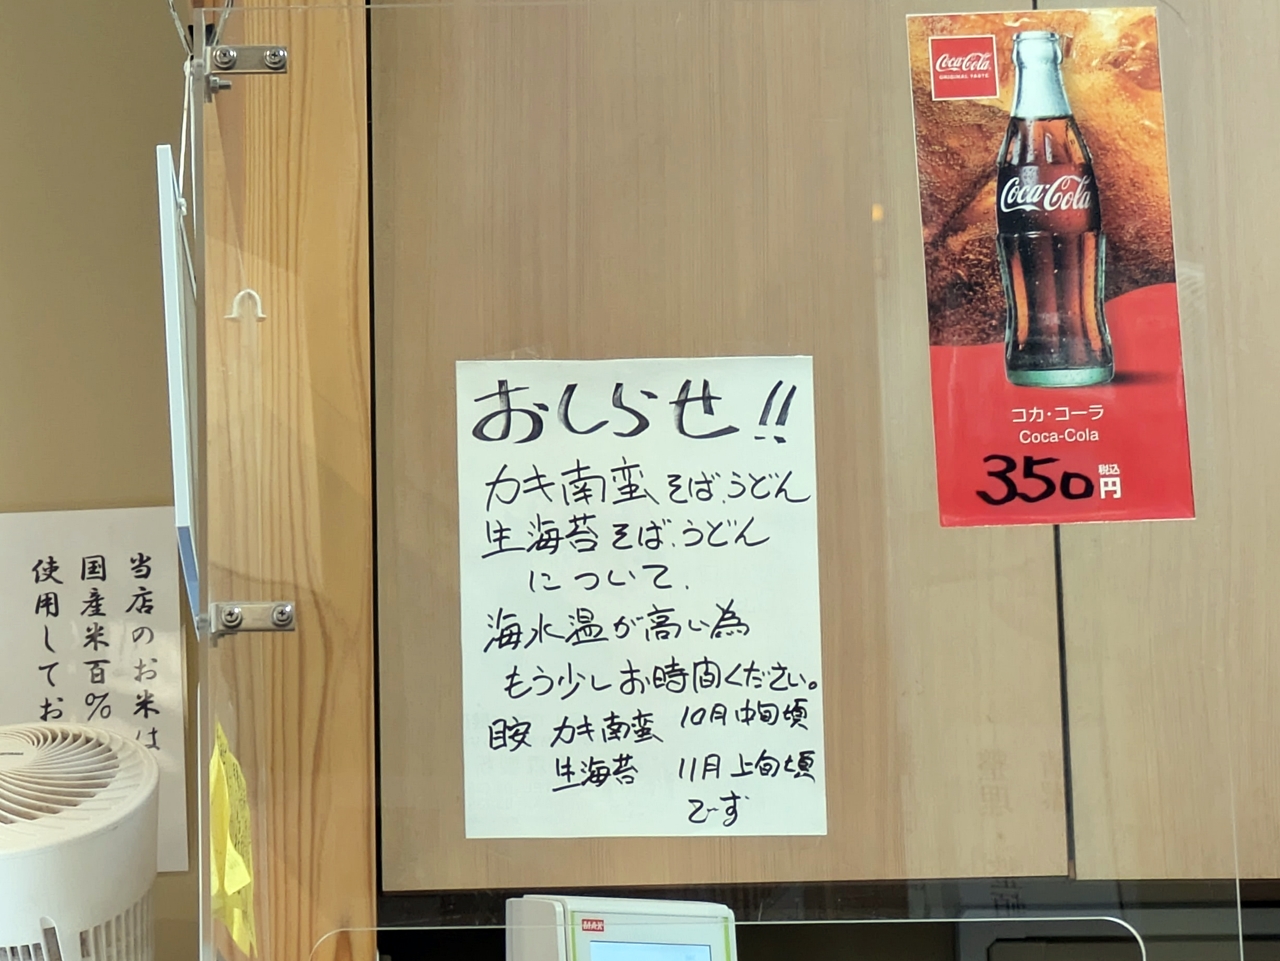 おしらせ!!
カキ南蛮そば、うどん
生海苔そば、うどん
について、
海水温が高い為
もう少しお時間ください。
目安 カキ南蛮 10月中旬頃
生海苔 11月上旬頃
です
Coca-Cola
ORIGINAL TASTE
Coca-Cola
コカ・コーラ
Coca-Cola
350円
税込
当店のお米は
国産米百%
使用してお
MAX